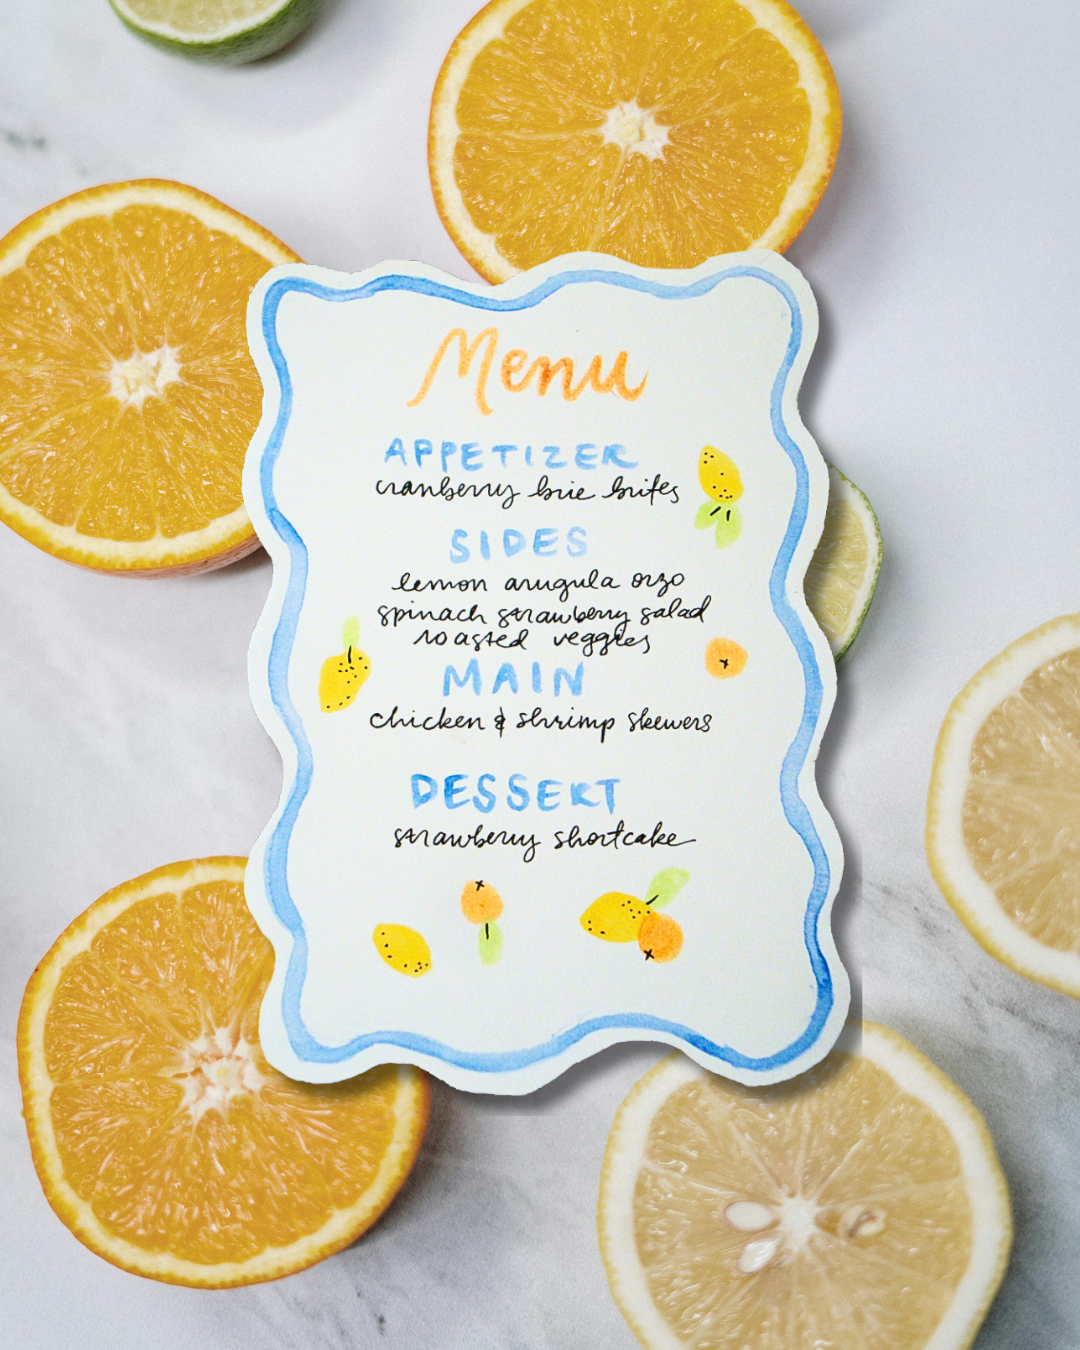 Menu
APPETIZER
cranberry brie brites
SIDES
lemon arugula orzo
spinach strawberry salad
roasted veggies
MAIN
chicken & shrimp skewers
DESSERT
strawberry shortcake